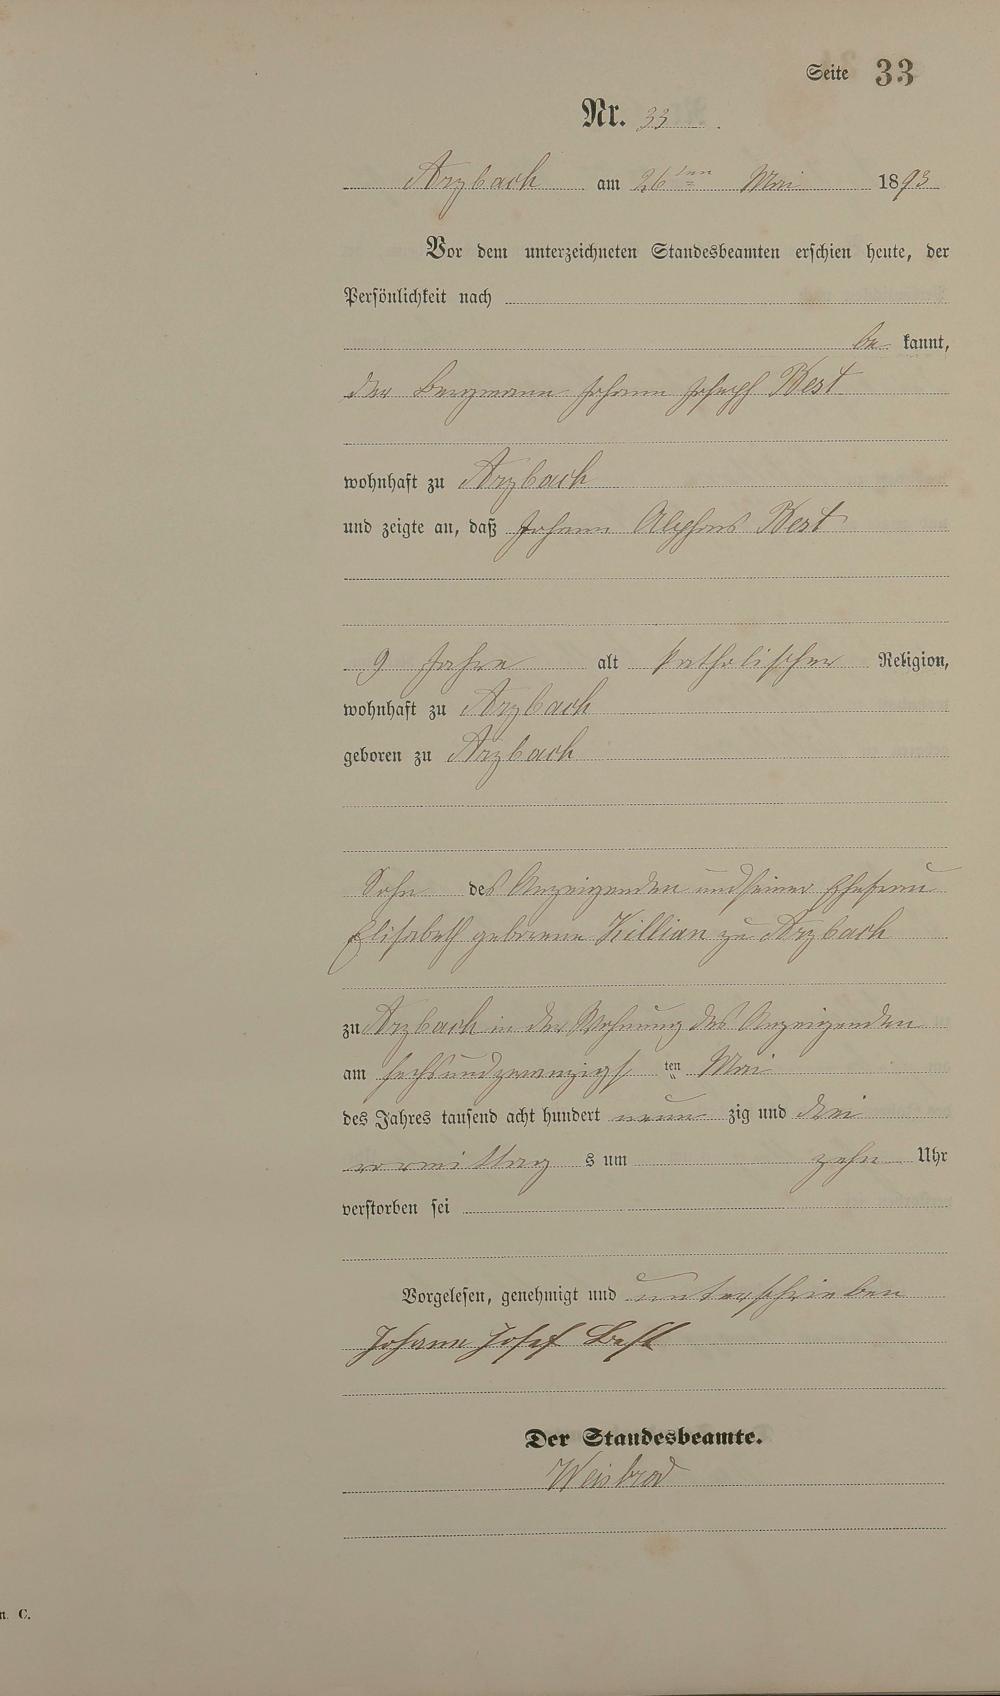 Seite 33
Nr. 33
Arzbach am 26ten Mai 1893
Vor dem unterzeichneten Standesbeamten erschien heute, der
Persönlichkeit nach
be kannt,
der Bergmann Johann Joseph Best
wohnhaft zu Arzbach
und zeigte an, daß Johann Alphons Best
9 Jahre alt katholischer Religion,
wohnhaft zu Arzbach
geboren zu Arzbach
Sohn des Anzeigenden und seiner Ehefrau
Elisabeth geborene Killian zu Arzbach
zu Arzbach in der Wohnung des Anzeigenden
am sechsundzwanzigs ten Mai
des Jahres tausend acht hundert neun zig und drei
vormittag s um zehn Uhr
verstorben sei
Vorgelesen, genehmigt und unterschrieben
Johann Josef Best
Der Standesbeamte.
Weisbrod
n. C.